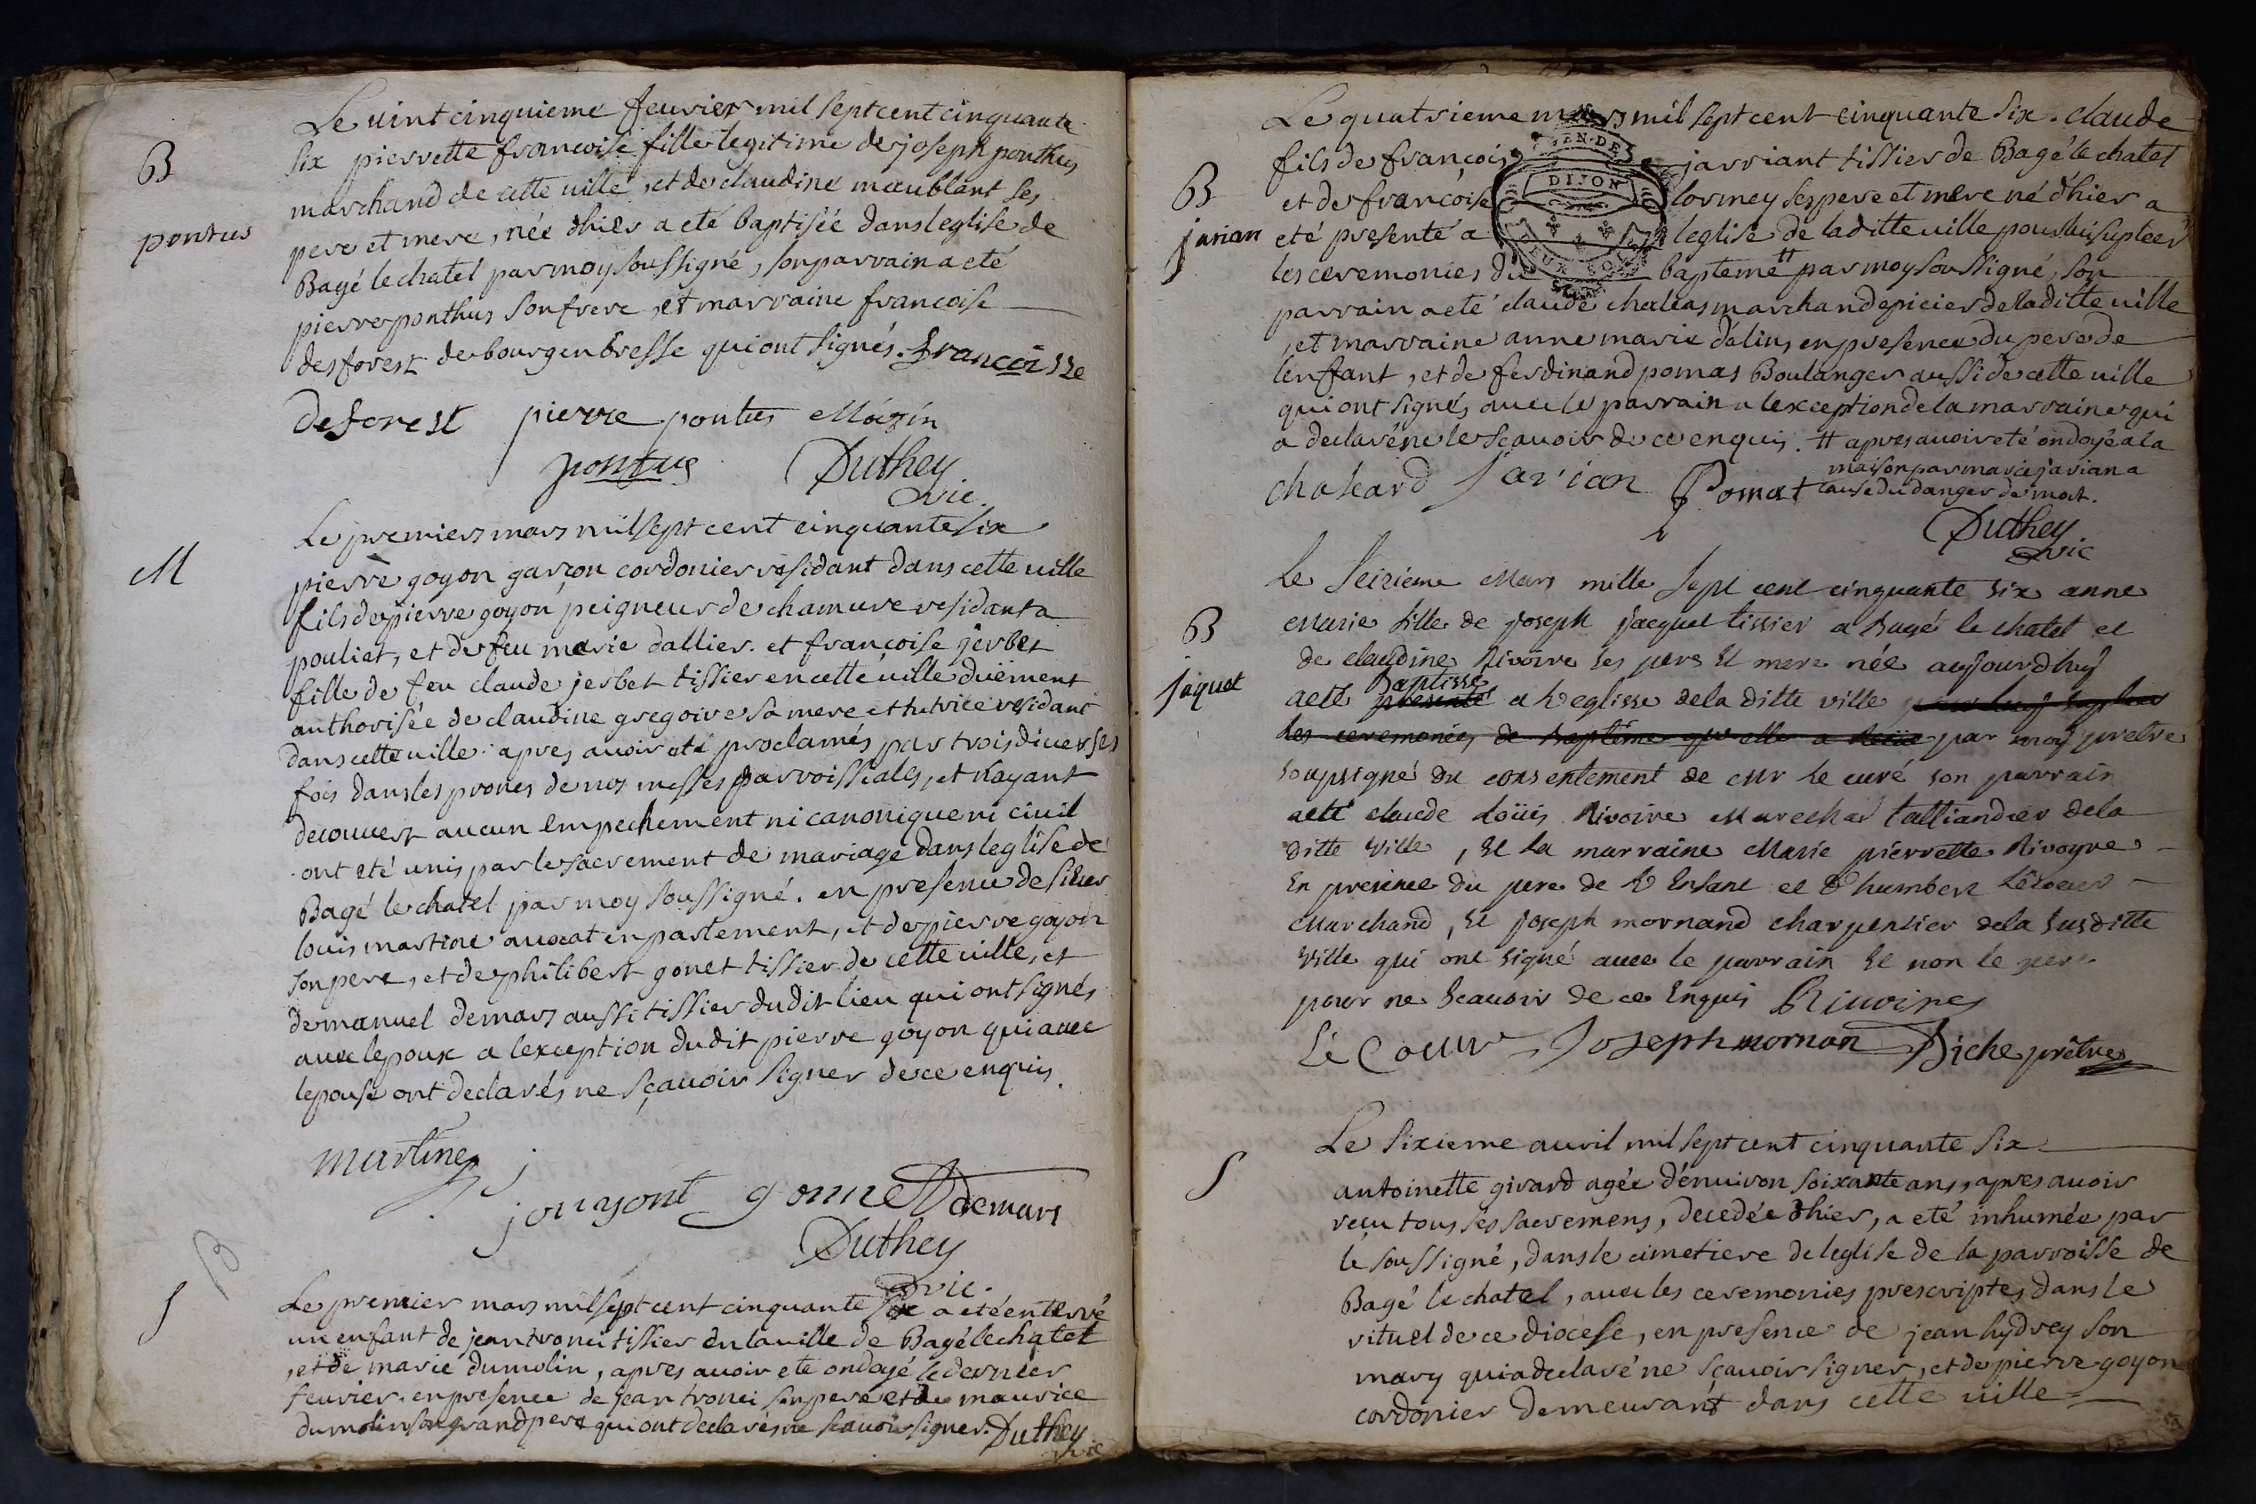 Le vint cinquieme feuvier mil sept cent cinquante
B
six pierrette francoise fille legitime de joseph ponthus
marchand de cette ville, et de claudine maublant ses
pontus
pere et mere, née d'hier a eté baptisée dans leglise de
Bagé le chatel par moy soussigné, son parrain a eté
pierre ponthus son frere, et marraine francoise
desforest de bourg en bresse qui ont signés. francoisse
deforest pierre pontus Mazin
pontus Duthey
vic.
Le premier mars mil sept cent cinquante six
M
pierre goyon garçon cordonier residant dans cette ville
fils de pierre goyon peigneur de chamure residant a
pouliat, et de feu marie dallier. et françoise jerbet
fille de feu claude jerbet tissier en cette ville duëment
authorisée de claudine gregoire sa mere et tutrice residant
dans cette ville. apres avoir eté proclamés par trois diverses
fois dans les prones de nos messes parroissiales, et n'ayant
decouvert aucun empechement ni canonique ni civil
ont eté unis par le sacrement de mariage dans leglise de
Bagé le chatel par moy soussigné. en presence de sieur
louis martine avocat en parlement, et de pierre goyon
son pere, et de philibert gonet tissier de cette ville, et
demanuel demars aussi tissier dudit lieu qui ont signés
avec lepoux a lexception dudit pierre goyon qui avec
lepouse ont declarés ne sçavoir signer de ce enquis.
martine
gonnet demars
Duthey
vic.
B
S
Le premier mars mil sept cent cinquante six a eté enterré
un enfant de jean tronci tissier en la ville de Bagé le chatel
, et de marie dumolin, apres avoir ete ondoyé le dernier
feuvier. en presence de jean tronci son pere et de maurice
dumolin son grand pere qui ont declarés ne scavoir signer. Duthey
vic
Le quatrieme mars mil sept cent cinquante six. claude
fils de françois jarriant tissier de Bagé le chatel
B
et de françoise lormey ses pere et mere né d'hier a
jarian
eté presenté a leglise de laditte ville pour lui supleer
les ceremonies du bapteme # par moy soussigné, son
parrain a eté claude chaleas marchand epicier de laditte ville
, et marraine anne marie dalins en presence du pere de
lenffant, et de ferdinand pomas Boulanger aussi de cette ville
qui ont signés avec le parrain a lexception de la marraine qui
a declaré ne le sçavoir de ce enquis. # apres avoir eté ondoyé a la
maison par marie jarian a
cause du danger de mort.
DIJON
chaleard jarian Pomat
Duthey
vic
Le seizieme Mars mille sept cent cinquante six anne
B
Marie fille de joseph jacquet tissier a bagé le chatel et
de claudine Rivoire ses pere et mere née aujourdhuy
jaquet
a eté presenté baptissé a l'eglisse de la ditte ville pour luy suplier
les ceremonies de baptême qu'elle a reçue par moy pretre
soupsigné du consentement de Mr le curé son parrain
a eté claude Loüis Rivoire Marechal talliandier de la
ditte ville, et la marraine Marie pierrette Rivoyre
En presence du pere de l'Enfant et d'humbert Lécoeur
Marchand, et joseph mornand charpentier de la susditte
ville qui ont signé avec le parrain et non le pere
pour ne scavoir de ce Enquis Rivoires
Lé Cour Joseph mornan Diche prêtre
Le sixieme avril mil sept cent cinquante six
S
antoinette girard agée d'environ soixante ans, apres avoir
reçu tous ses sacremens, decedée d'hier, a eté inhumée par
le soussigné, dans le cimetiere de leglise de la parroisse de
Bagé le chatel, avec les ceremonies prescriptes dans le
rituel de ce diocese, en presence de jean hydrey son
mary qui a declaré ne sçavoir signer, et de pierre goyon
cordonier demeurant dans cette ville